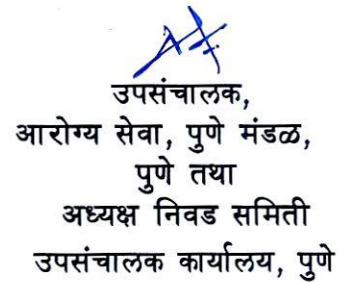 उपसंचालक,
आरोग्य सेवा, पुणे मंडळ,
पुणे तथा
अध्यक्ष निवड समिती
उपसंचालक कार्यालय, पुणे